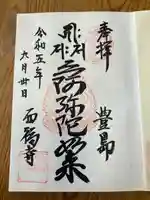 奉拝
豊島
阿弥陀如来
令和五年
六月廿日
西福寺